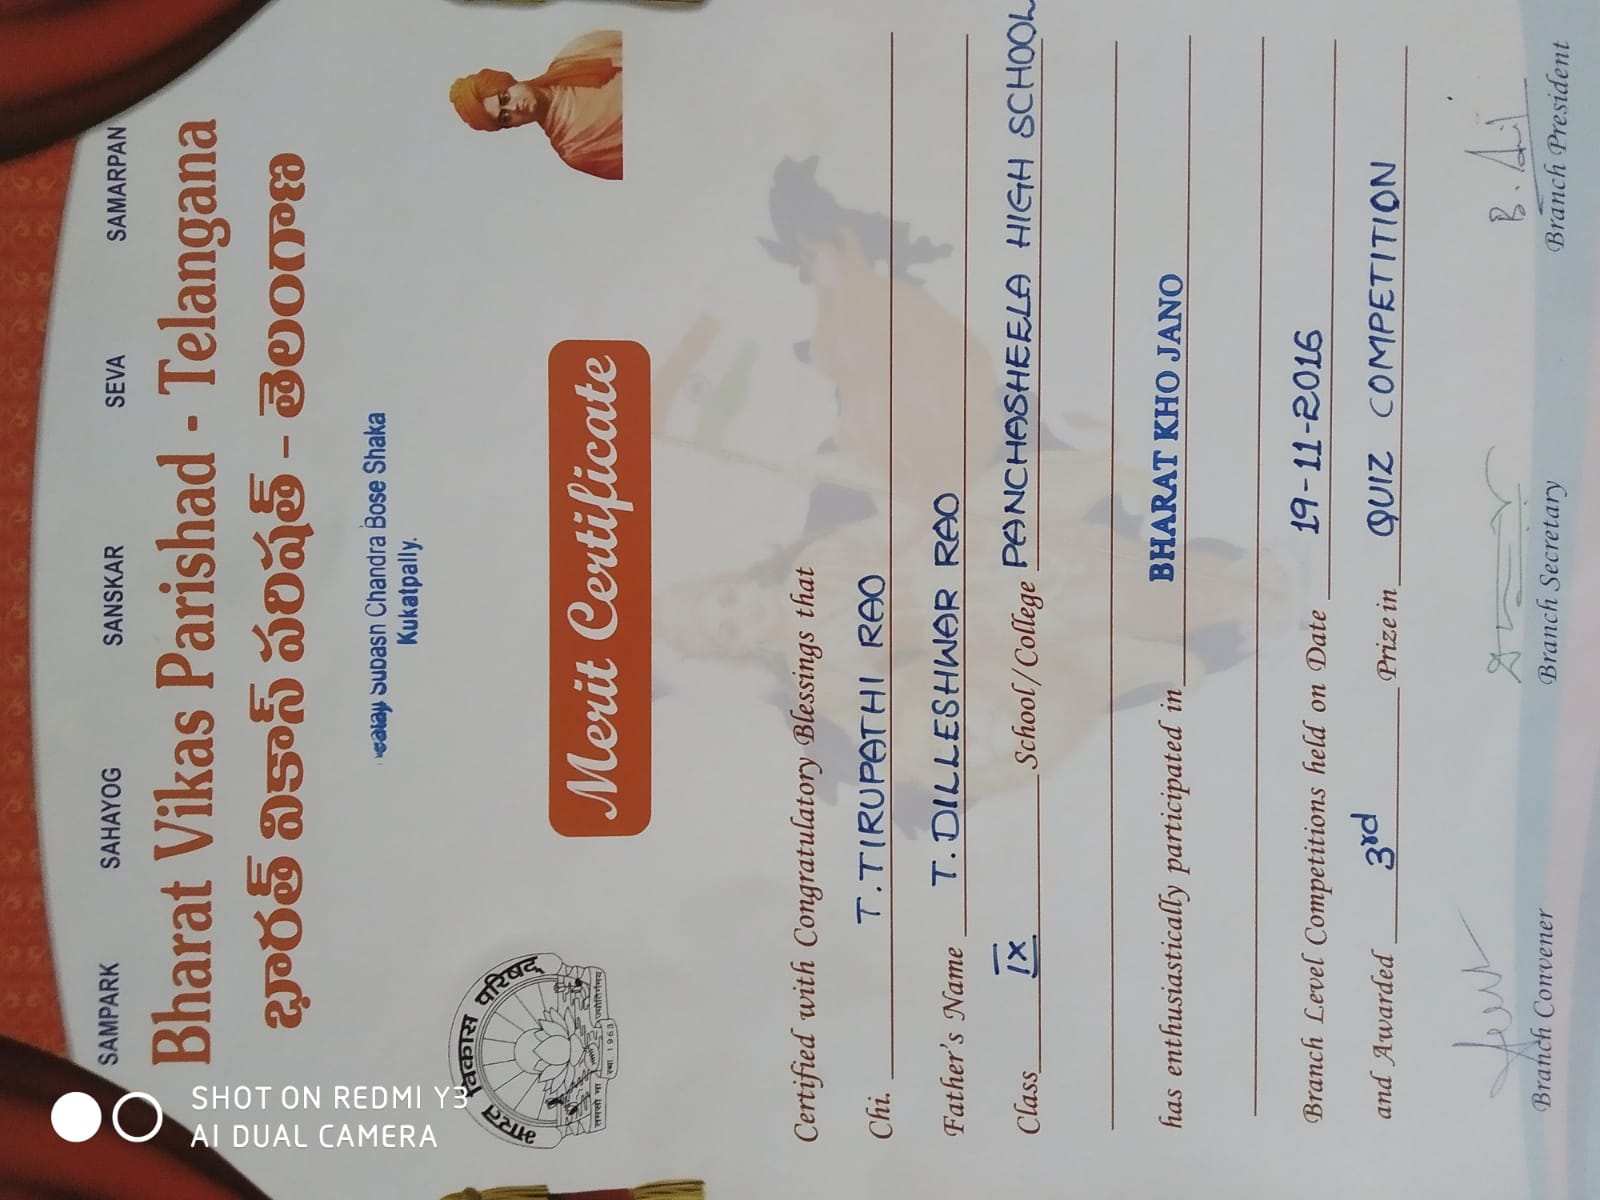 SAMPARK SAHAYOG SANSKAR SEVA SAMARPAN
Bharat Vikas Parishad - Telangana
భారత్ వికాస్ పరిషత్ - తెలంగాణ
Subash Chandra Bose Shaka
Kukatpally.
भारत विकास परिषद्
तमसो मा ज्योतिर्गमय
स्था. 1963
Merit Certificate
Certified with Congratulatory Blessings that
Chi. T. TIRUPATHI RAO
Father's Name T. DILLESHWAR RAO
Class IX School/College PANCHASHEELA HIGH SCHOOL
has enthusiastically participated in BHARAT KHO JANO
Branch Level Competitions held on Date 19-11-2016
and Awarded 3rd Prize in QUIZ COMPETITION
B. Anil
Branch Convener Branch Secretary Branch President
SHOT ON REDMI Y3
AI DUAL CAMERA